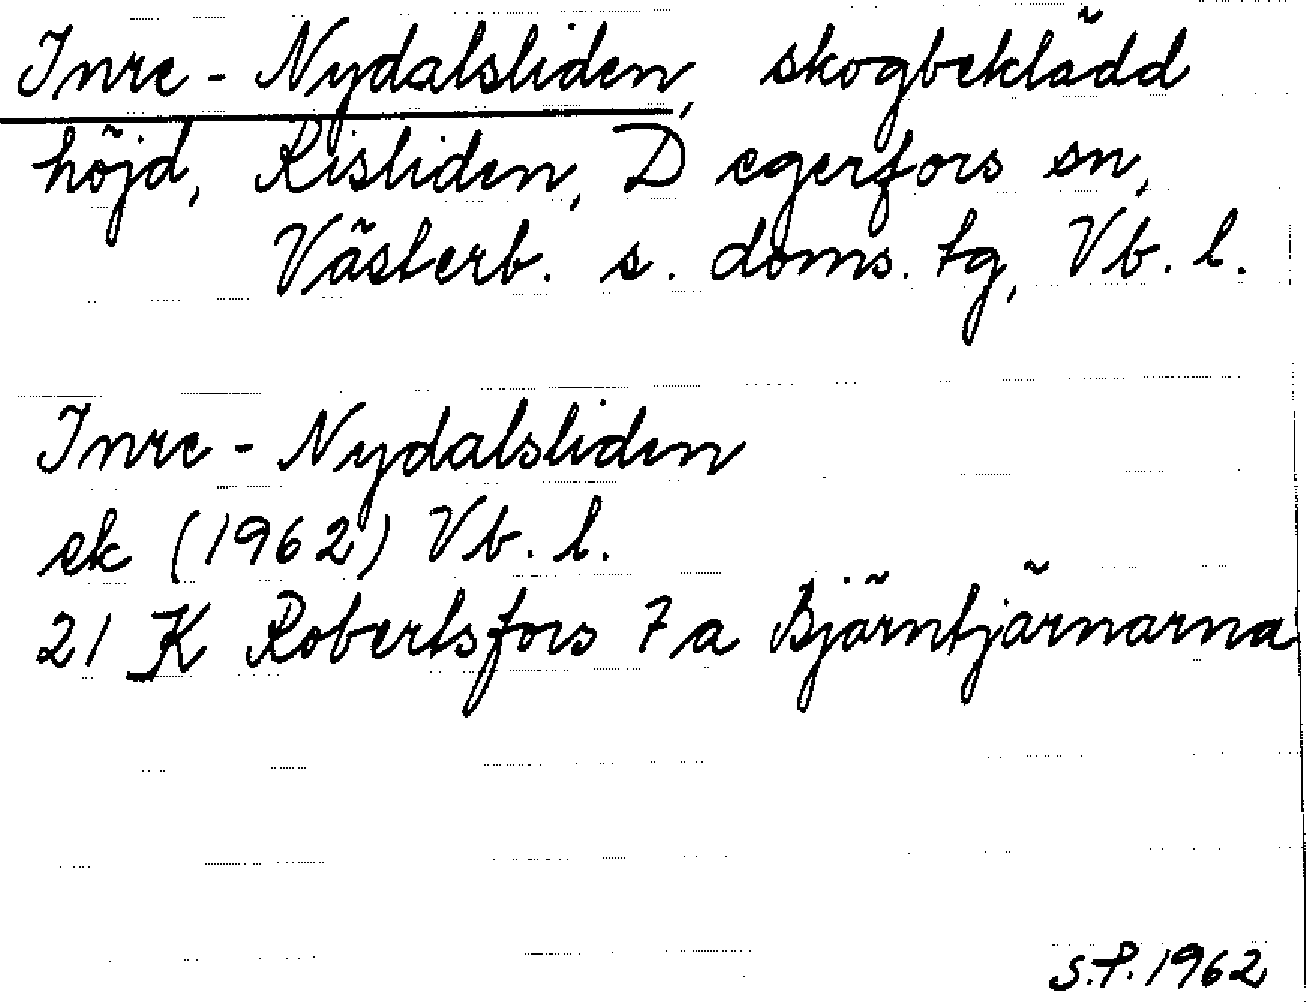 Inre-Nydalsliden, skogbeklädd
höjd, Risliden, Degerfors sn,
Västerb. s. doms. tg, Vb. l.
Inre-Nydalsliden
ek (1962) Vb. l.
21 K Robertsfors 7 a Björntjärnarna
S.P. 1962